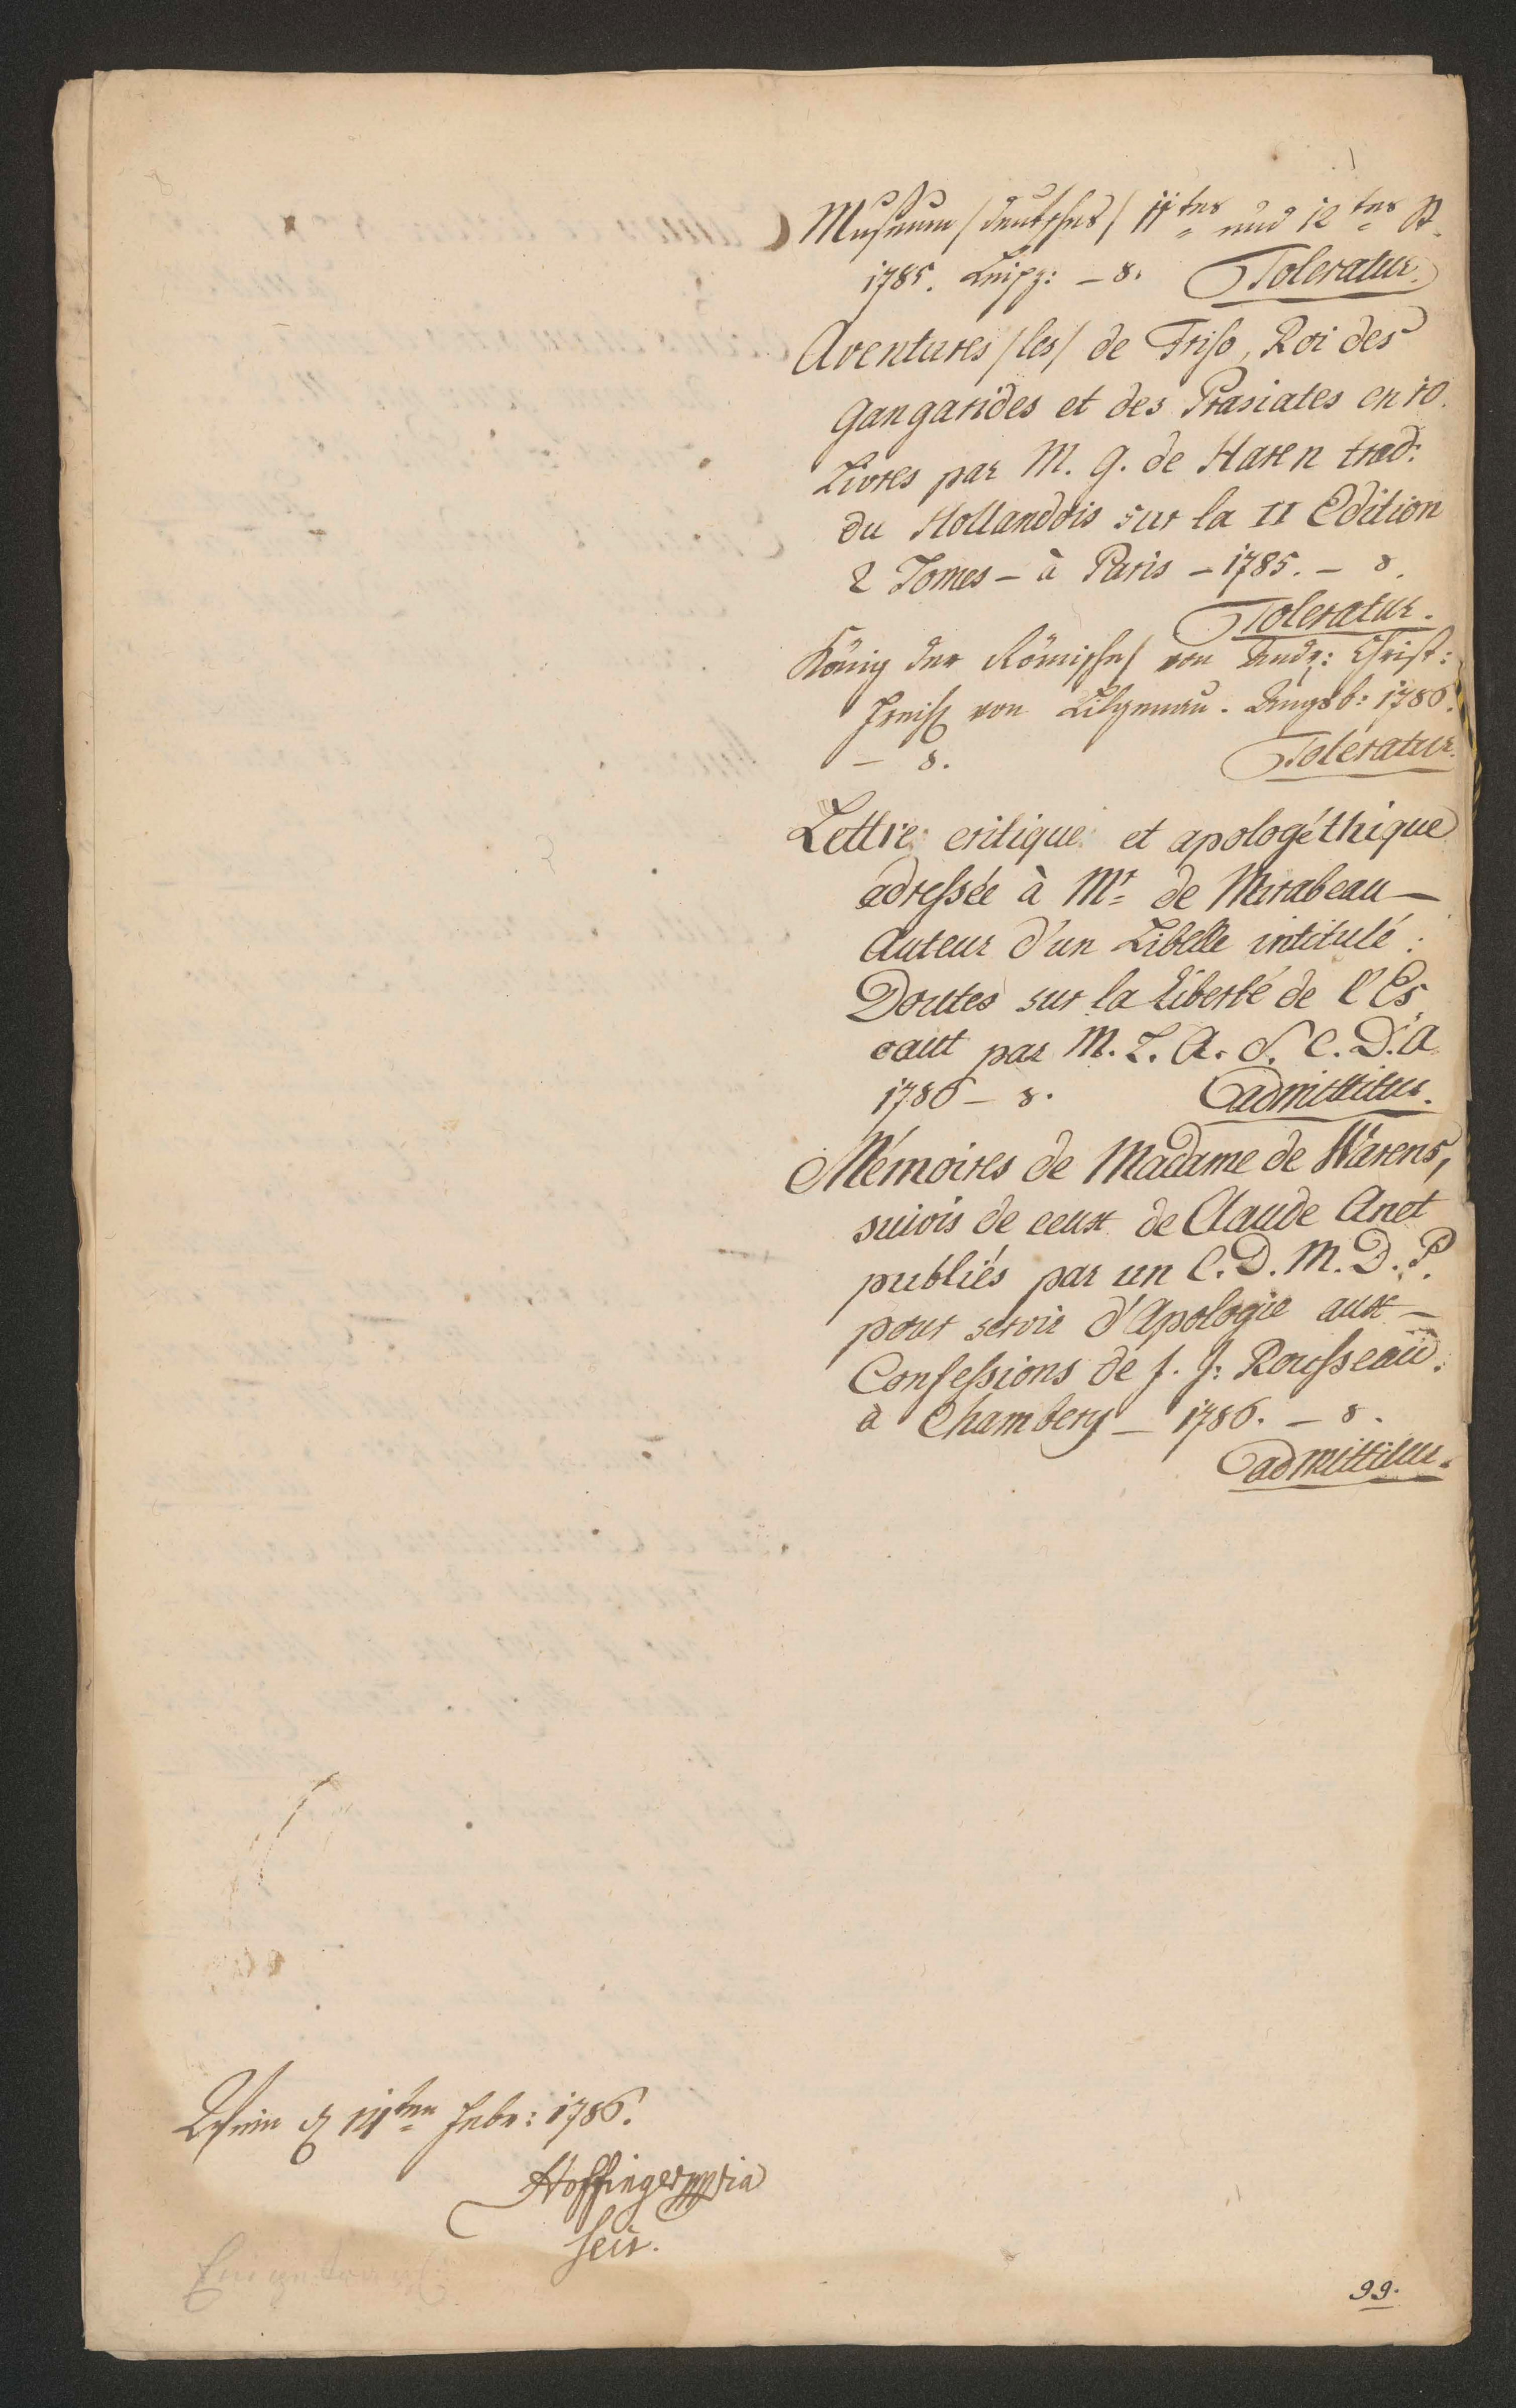 Museum /deutsches/ 11tes und 12tes St.
1785. Leipz: – 8. Toleratur.
Aventures /les/ de Friso, Roi des
Gangarides et des Prasiates en 10.
Livres par M. G. de Haren trad:
du Hollandois sur la II Edition
2 Tomes – à Paris – 1785. – 8.
Toleratur.
König der Römische/ von Andr: Christ:
von Lilgenau. Augsb: 1786.
– 8. Toleratur.
Lettre critique et apologéthique
adressée à Mr de Mirabeau –
Auteur d'un Libelle intitulé:
Doutes sur la Liberté de l'Es
caut par M. L. A. d. C. D. A.
1786 – 8. admittitur.
Mémoires de Madame de Warens,
suivis de ceux de Claude Anet
publiés par un C. D. M. D. P.
pour servir d'Apologie aux –
Confessions de J. J. Rousseau.
à Chambery – 1786. – 8.
admittitur.
Wien d 14ten Febr: 1786.
Hoffinger mpria
Secr.
99.